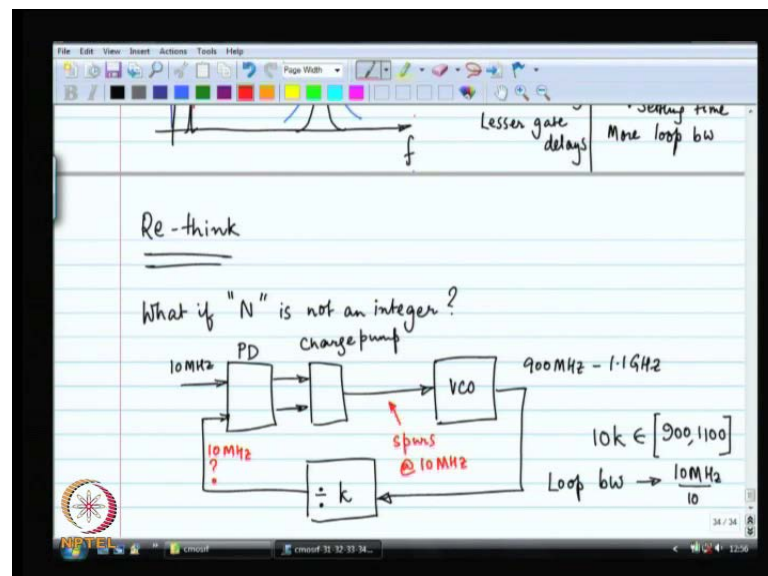 File Edit View Insert Actions Tools Help
Page Width
B I
f
Lesser gate delays
Settling time
More loop bw
Re-think
What if "N" is not an integer?
10MHz
PD
chargepump
VCO
900MHz - 1.1GHz
10MHz
?
spurs
@ 10MHz
÷ k
10k ∈ [900,1100]
Loop bw → 10MHz
10
34 / 34
NPTEL
cmosrf
cmosrf-31-32-33-34...
12:56